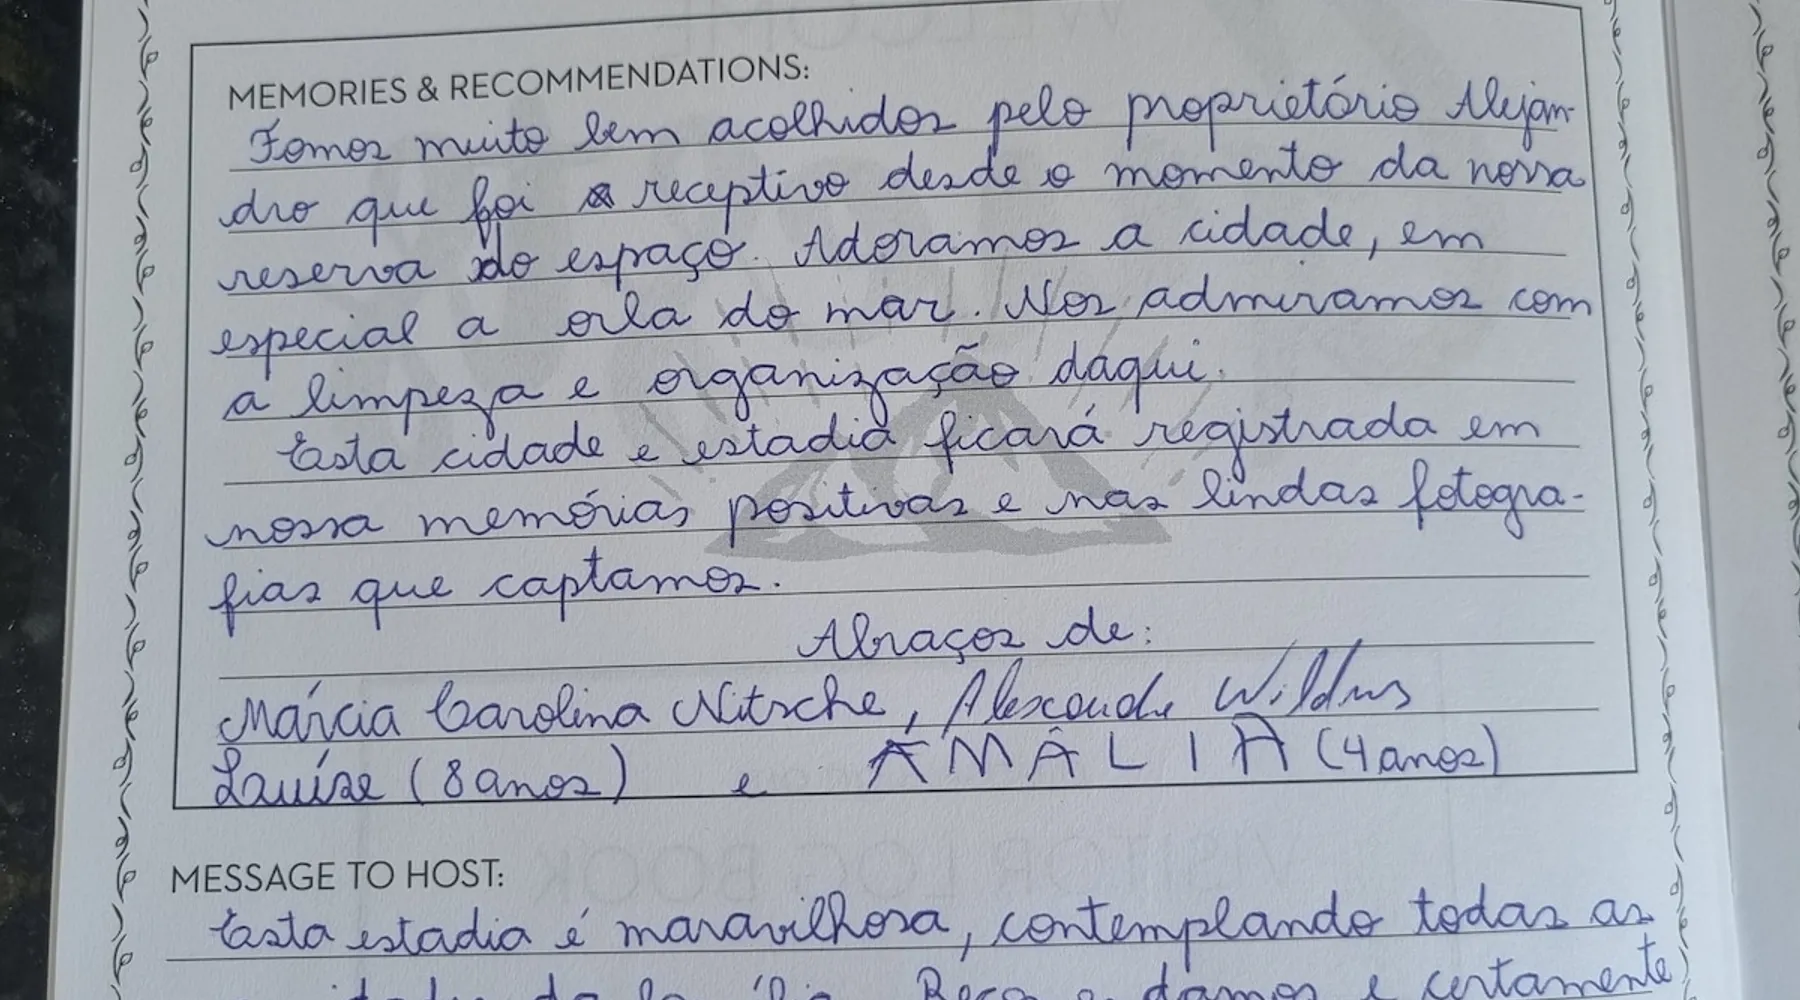 MEMORIES & RECOMMENDATIONS:
Fomos muito bem acolhidos pelo proprietário Alejan-
dro que foi receptivo desde o momento da nossa
reserva do espaço. Adoramos a cidade, em
especial a orla do mar. Nos admiramos com
a limpeza e organização daqui.
Esta cidade e estadia ficará registrada em
nossa memórias positivas e nas lindas fotogra-
fias que captamos.
Abraços de:
Márcia Carolina Nitsche, Alexandre
Lauíse (8 anos) e AMÁLIA (4 anos)
MESSAGE TO HOST:
Esta estadia é maravilhosa, contemplando todas as
e certamente